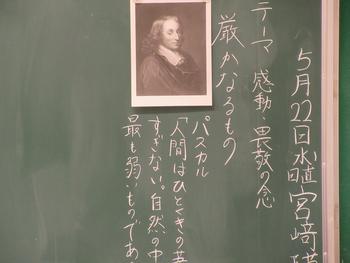 5月22日水 日直 宮﨑
テーマ 感動・畏敬の念
厳かなるもの
パスカル
「人間はひとくきの
すぎない。自然の中
最も弱いものであ